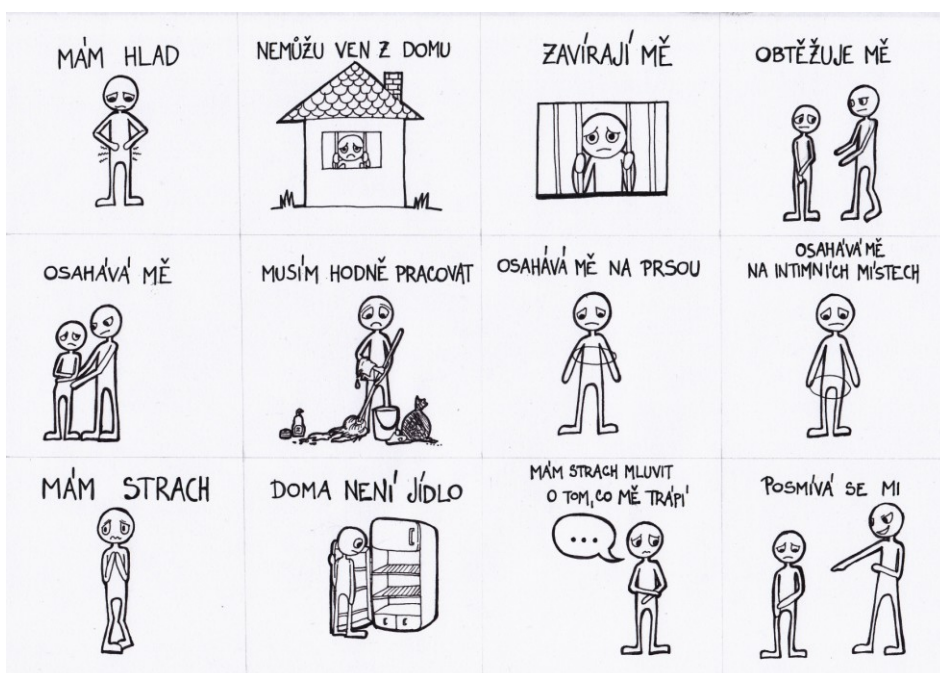 MÁM HLAD
NEMŮŽU VEN Z DOMU
ZAVÍRAJÍ MĚ
OBTĚŽUJE MĚ
OSAHÁVÁ MĚ
MUSÍM HODNĚ PRACOVAT
OSAHÁVÁ MĚ NA PRSOU
OSAHÁVÁ MĚ
NA INTIMNÍCH MÍSTECH
MÁM STRACH
DOMA NENÍ JÍDLO
MÁM STRACH MLUVIT
O TOM, CO MĚ TRÁPÍ
...
POSMÍVÁ SE MI